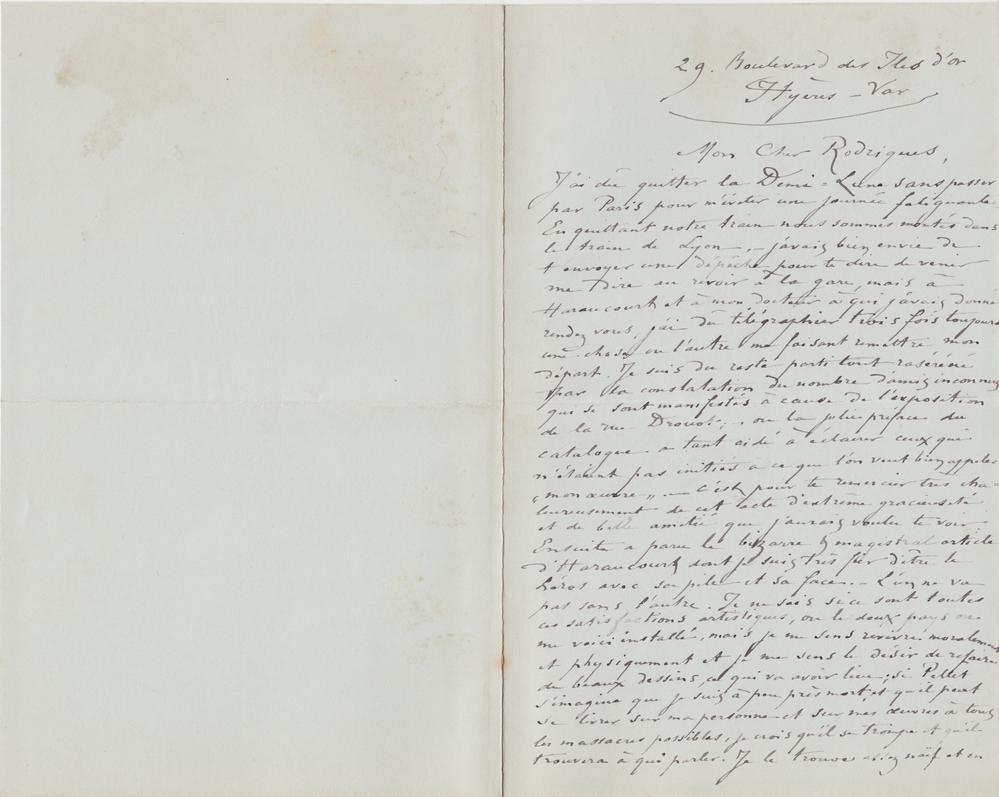 29. Boulevard des Iles d'or
Hyères - Var
Mon Cher Rodrigues,
J'ai dû quitter la Demi=Lune sans passer
par Paris pour m'éviter une journée fatiguante.
En quittant notre train nous sommes montés dans
le train de Lyon, - j'avais bien envie de
t'envoyer une dépêche pour te dire de venir
me dire au revoir à la gare, mais à
Haraucourt et à mon docteur à qui j'avais donné
rendez vous, j'ai dû télégraphier trois fois toujours
une chose ou l'autre me faisant remettre mon
départ. Je suis du reste parti tout rasséréné
par la constatation du nombre d'amis inconnus
qui se sont manifestés à cause de l'exposition
de la rue Drouot; - ou la jolie préface du
catalogue a tant aidé à éclairer ceux qui
n'étaient pas initiés à ce que l'on veut bien appeler
"mon œuvre" - c'est pour te remercier très cha-
leureusement de cet acte d'extrême gracieuseté
et de belle amitié que j'aurais voulu te voir
Ensuite a paru le bizarre & magistral article
d'Haraucourt dont je suis très fier d'être le
héros avec sa pile et sa face. - L'un ne va
pas sans l'autre. Je ne sais si ce sont toutes
ces satisfactions artistiques, ou le doux pays ou
me voici installé, mais je me sens revivre moralement
et physiquement et je me sens le désir de refaire
de beaux dessins, ce qui va avoir lieu; si Pellet
s'imagine que je suis à peu près mort et qu'il peut
se livrer sur ma personne et sur mes œuvres à tous
les massacres possibles, je crois qu'il se trompe et qu'il
trouvera à qui parler. Je le trouve naïf et en